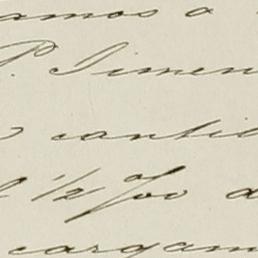 amos a
P. Jimen
cantid
1/2 % a
cargam